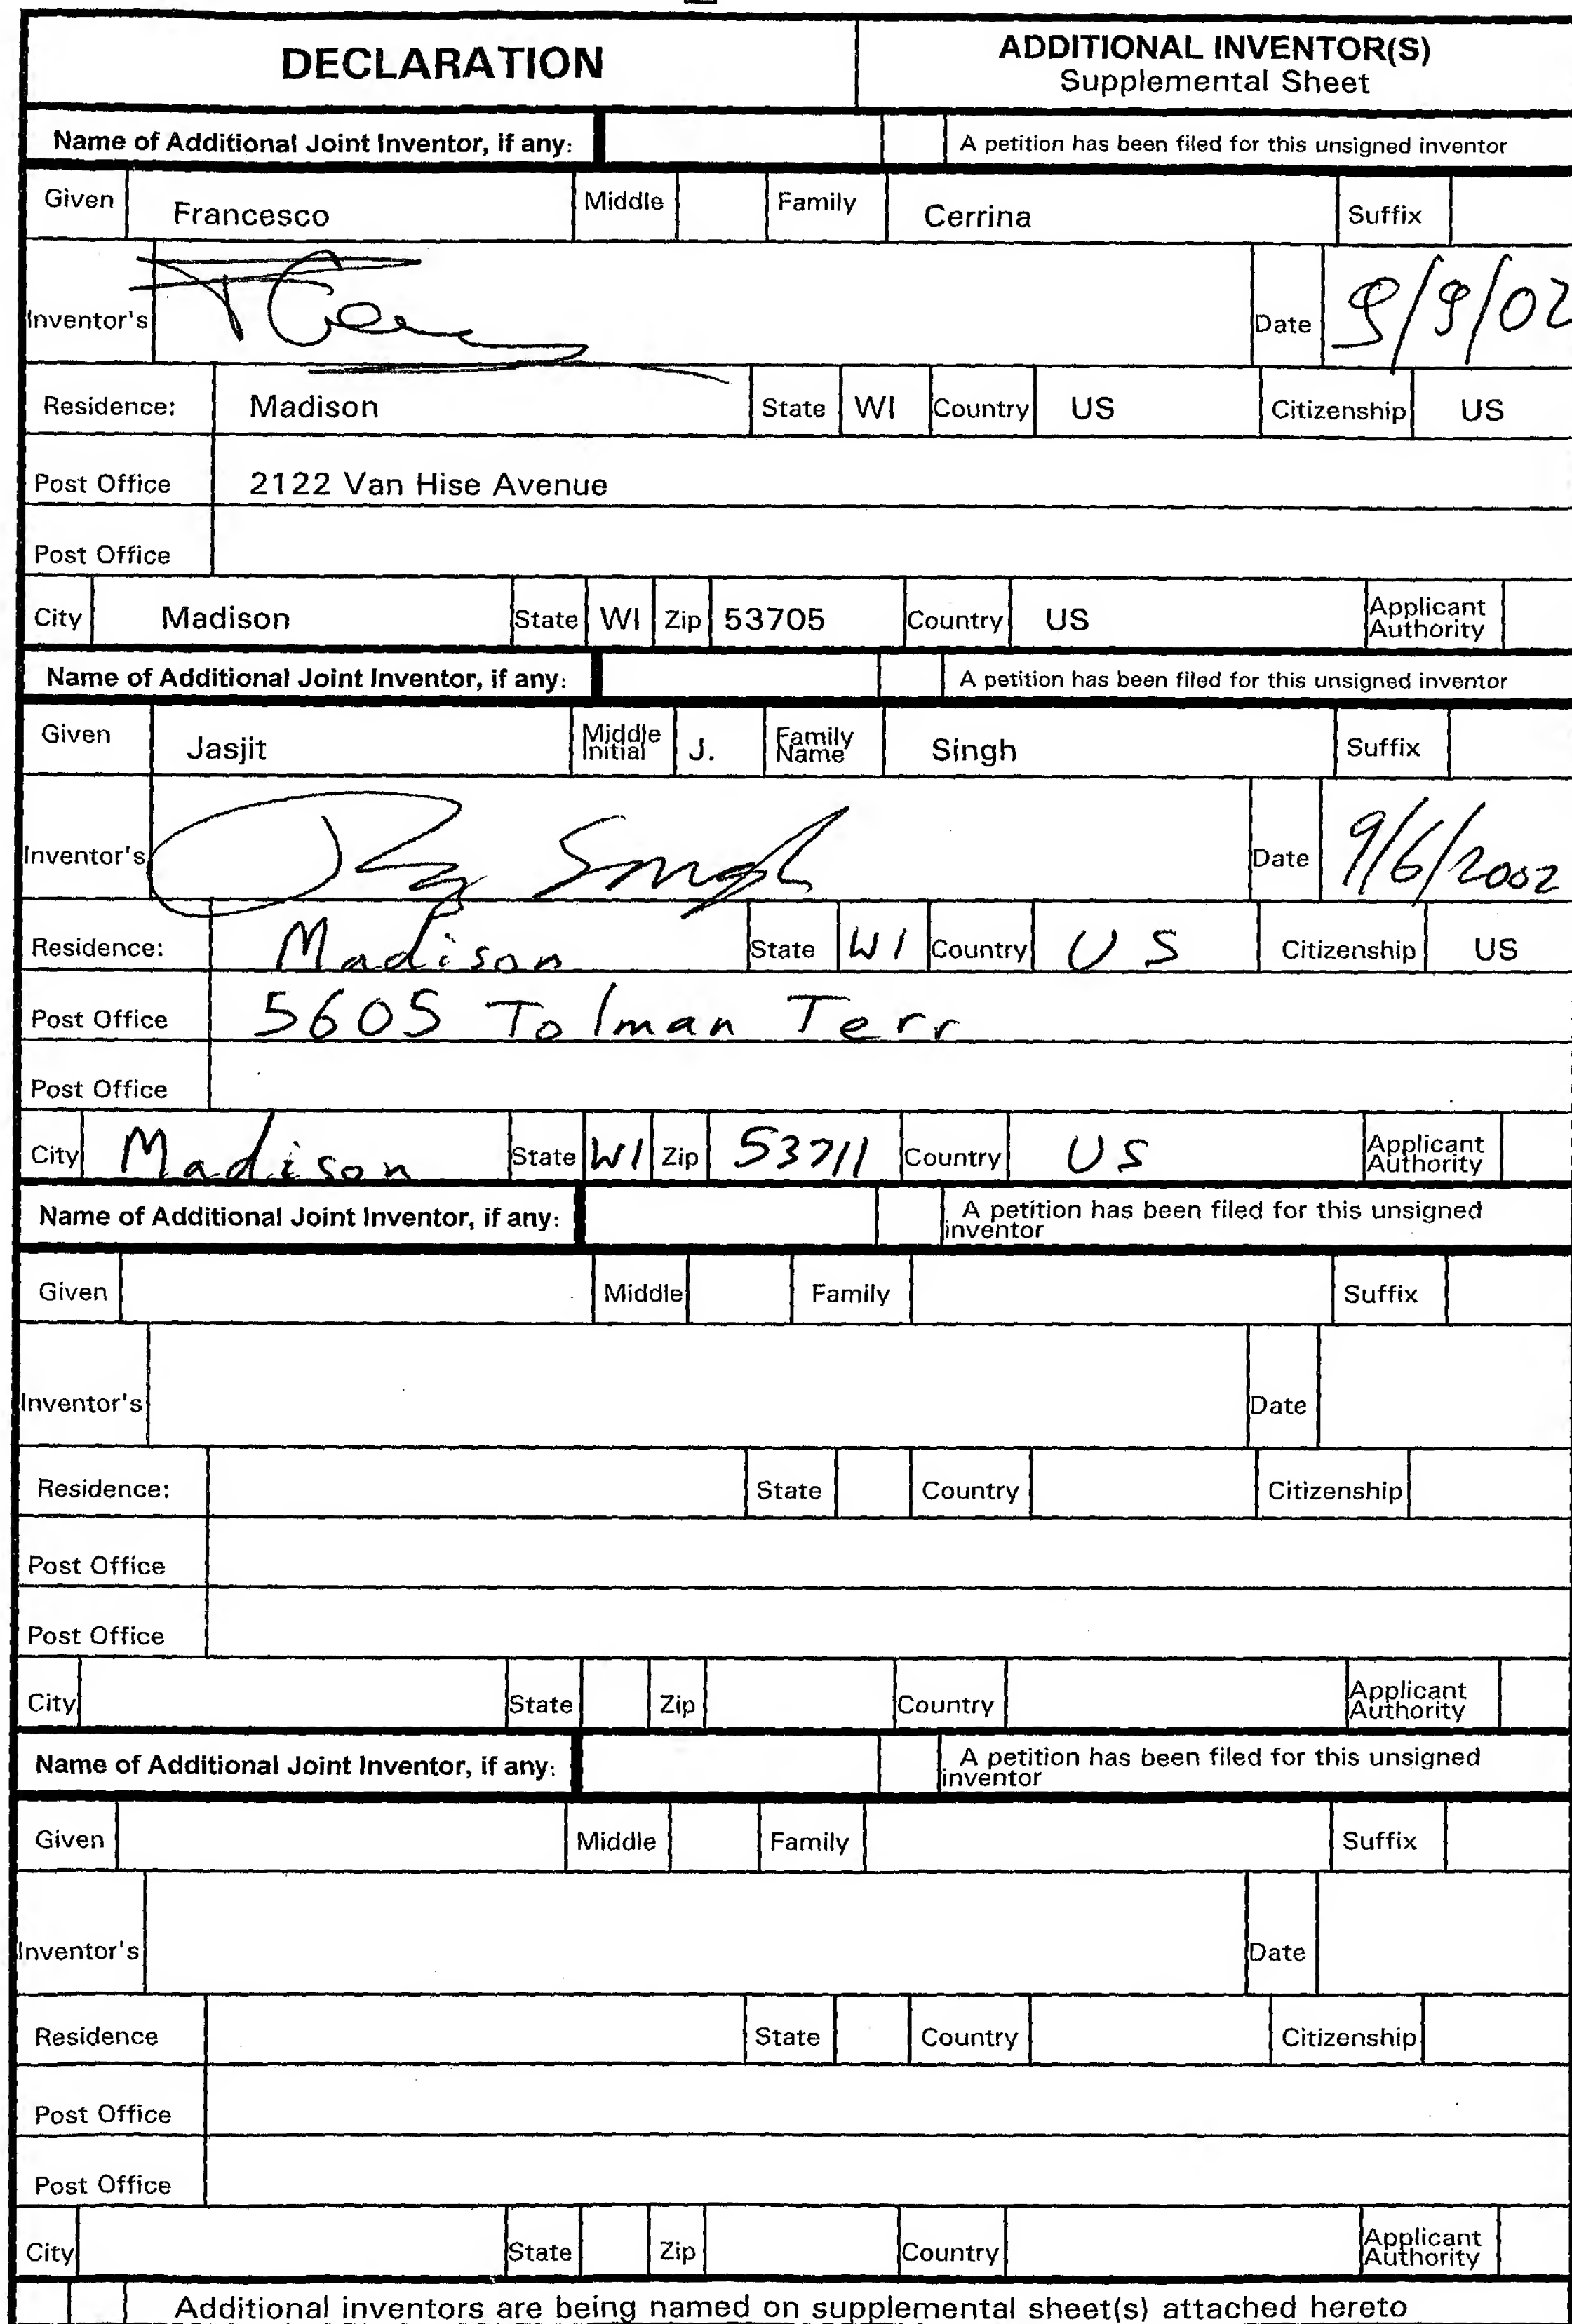 DECLARATION ADDITIONAL INVENTOR(S)
Supplemental Sheet
Name of Additional Joint Inventor, if any: A petition has been filed for this unsigned inventor
Given Francesco Middle Family Cerrina Suffix
Inventor's Date 9/9/02
Residence: Madison State WI Country US Citizenship US
Post Office 2122 Van Hise Avenue
Post Office
City Madison State WI Zip 53705 Country US Applicant Authority
Name of Additional Joint Inventor, if any: A petition has been filed for this unsigned inventor
Given Jasjit Middle Initial J. Family Name Singh Suffix
Inventor's Singh Date 9/6/2002
Residence: Madison State WI Country US Citizenship US
Post Office 5605 Tolman Terr
Post Office
City Madison State WI Zip 53711 Country US Applicant Authority
Name of Additional Joint Inventor, if any: A petition has been filed for this unsigned inventor
Given Middle Family Suffix
Inventor's Date
Residence: State Country Citizenship
Post Office
Post Office
City State Zip Country Applicant Authority
Name of Additional Joint Inventor, if any: A petition has been filed for this unsigned inventor
Given Middle Family Suffix
Inventor's Date
Residence State Country Citizenship
Post Office
Post Office
City State Zip Country Applicant Authority
Additional inventors are being named on supplemental sheet(s) attached hereto